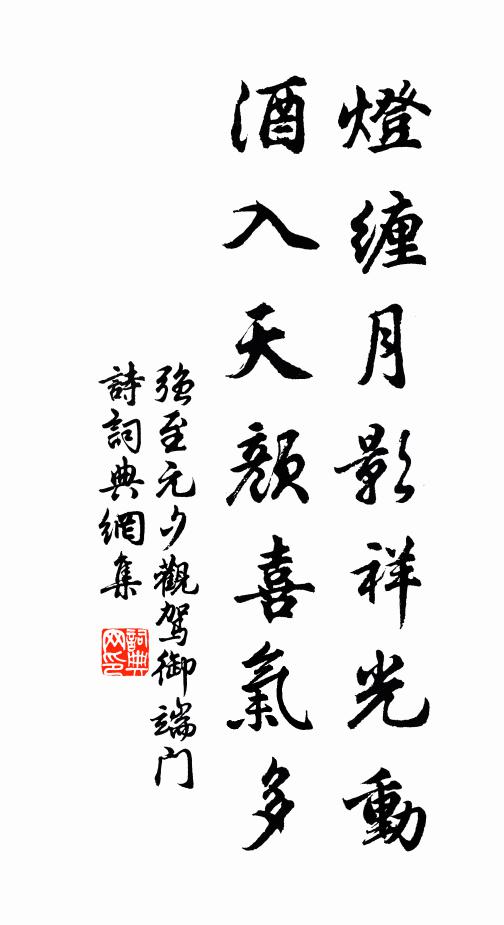 燈纏月影祥光動
酒入天顏喜氣多
強至元夕觀駕御端門
詩詞典網集
詞典網印